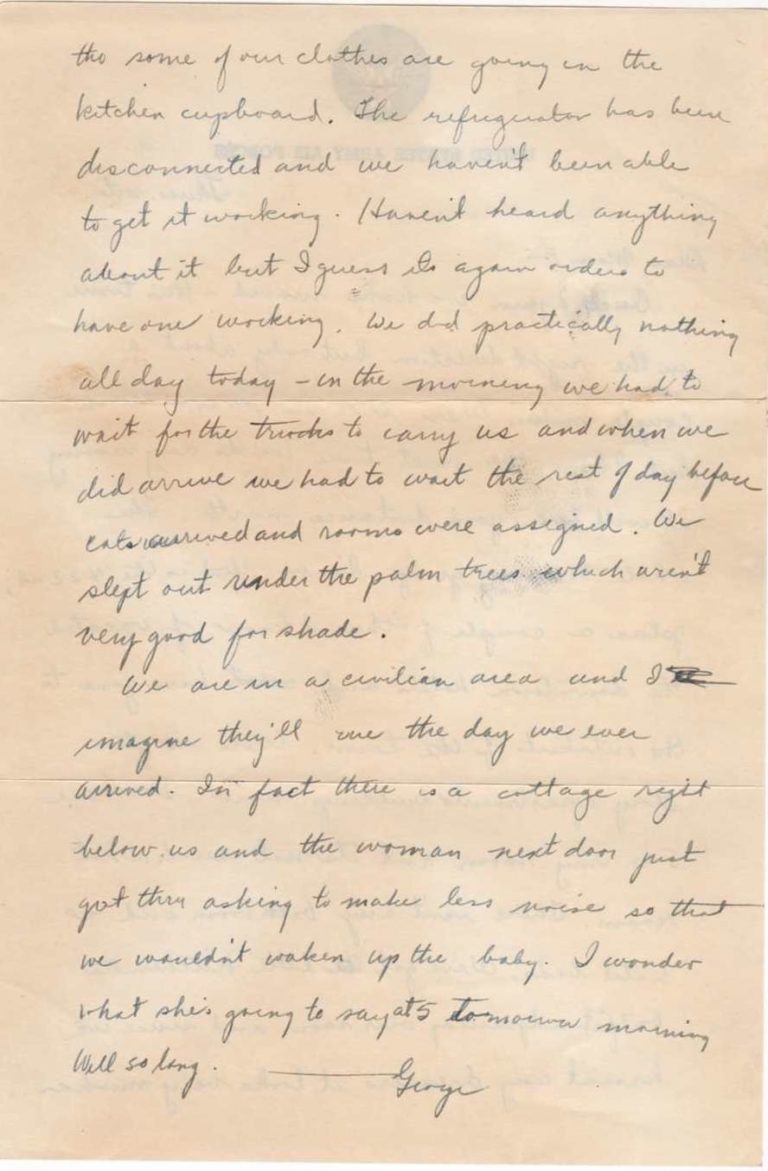 tho some of our clothes are going in the
kitchen cupboard. The refrigerator has been
disconnected and we haven't been able
to get it working. Haven't heard anything
about it but I guess its again orders to
have one working. We did practically nothing
all day today - in the morning we had to
wait for the trucks to carry us and when we
did arrive we had to wait the rest of day before
cots arrived and rooms were assigned. We
slept out under the palm trees which aren't
very good for shade.
We are in a civilian area and I
imagine they'll rue the day we ever
arrived. In fact there is a cottage right
below us and the woman next door just
got thru asking to make less noise so that
we wouldn't waken up the baby. I wonder
what she's going to say at 5 tomorrow morning
Well so long.
George